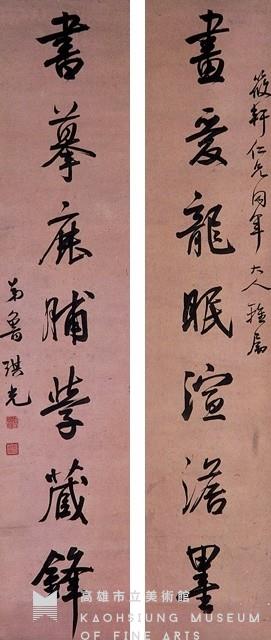 筱軒仁兄同年大人雅屬
畫愛龍眠渲澹墨
書摹鹿脯學藏鋒
弟魯琪光
高雄市立美術館
KAOHSIUNG MUSEUM
OF FINE ARTS